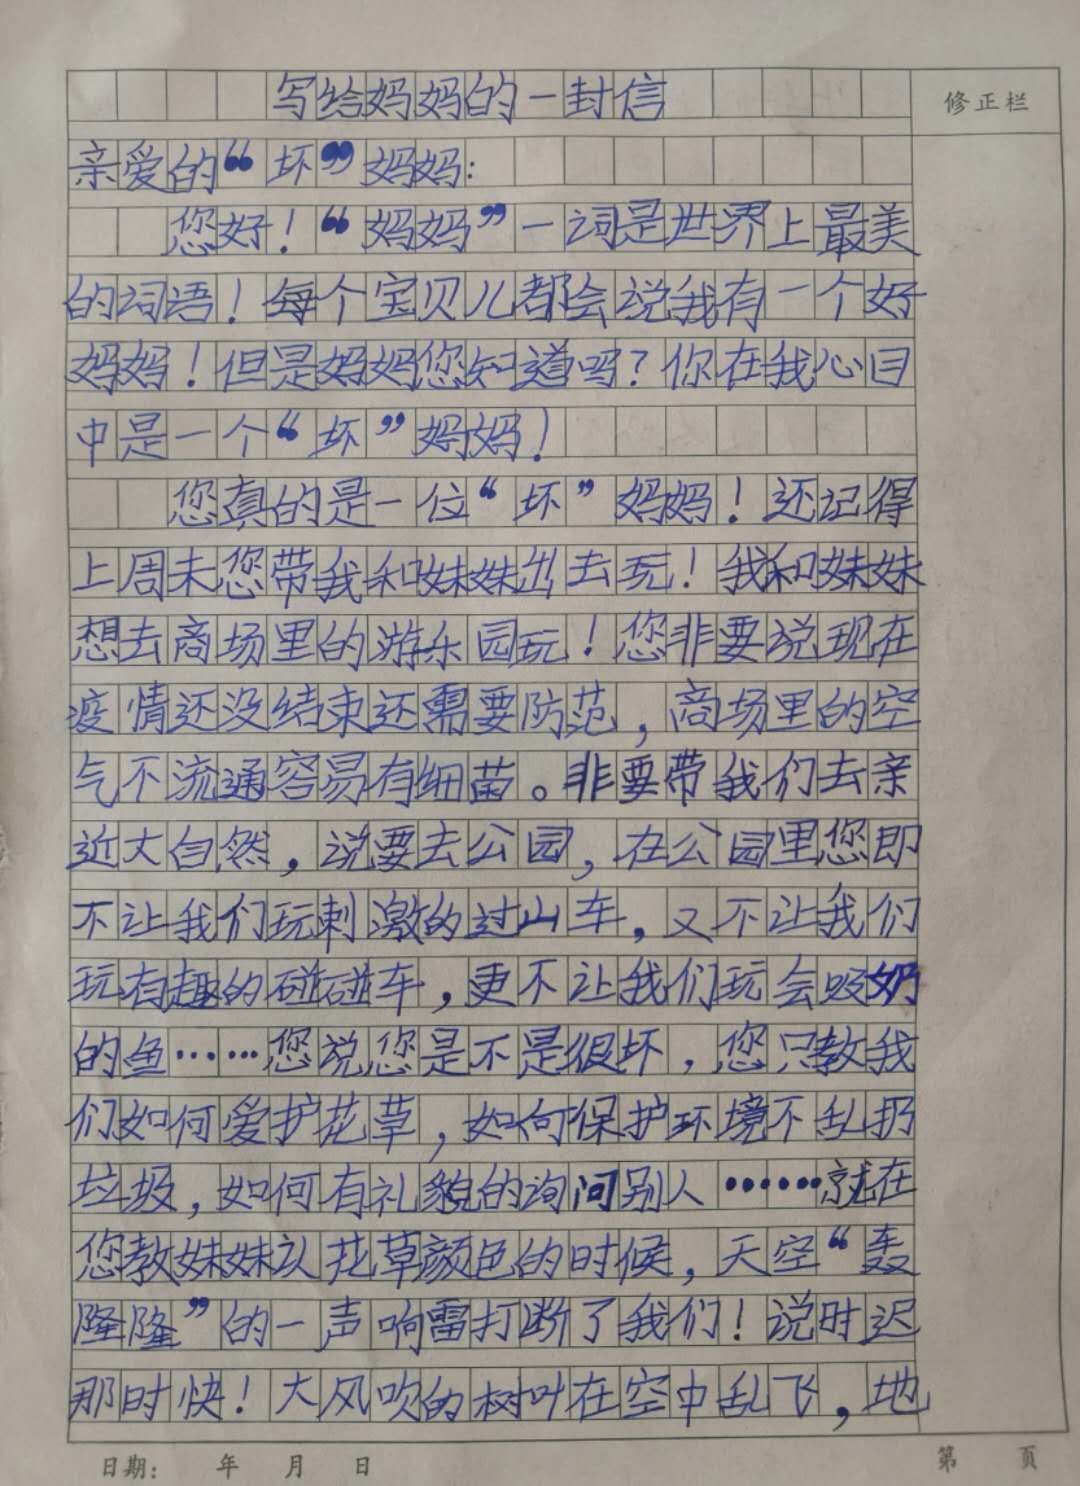 写给妈妈的一封信
修正栏
亲爱的“坏”妈妈：
您好！“妈妈”一词是世界上最美
的词语！每个宝贝儿都会说我有一个好
妈妈！但是妈妈您知道吗？你在我心目
中是一个“坏”妈妈！
您真的是一位“坏”妈妈！还记得
上周末您带我和妹妹出去玩！我和妹妹
想去商场里的游乐园玩！您非要说现在
疫情还没结束还需要防范，商场里的空
气不流通容易有细菌。非要带我们去亲
近大自然，说要去公园，在公园里您即
不让我们玩刺激的过山车，又不让我们
玩有趣的碰碰车，更不让我们玩会吸奶
的鱼……您说您是不是很坏，您只教我
们如何爱护花草，如何保护环境不乱扔
垃圾，如何有礼貌的询问别人……就在
您教妹妹认花草颜色的时候，天空“轰
隆隆”的一声响雷打断了我们！说时迟
那时快！大风吹的树叶在空中乱飞，地
日期： 年 月 日
第 页